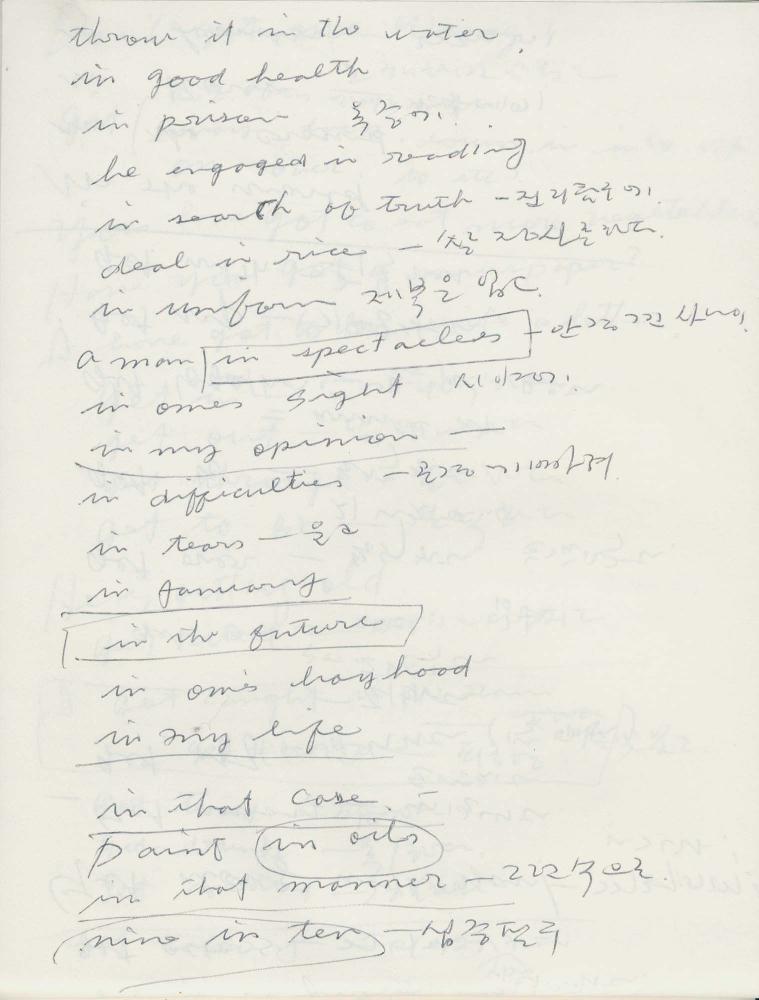 throw it in the water.
in good health
in prison 옥중에.
he engaged in reading
in search of truth - 진리탐구에.
deal in rice - 쌀 장사를 하다.
in uniform 제복을 입고.
a man in spectacles - 안경 낀 사나이.
in one's sight 시야에.
in my opinion —
in difficulties -
in tears — 울고
in January
in the future
in one's boyhood
in my life
in that case. -
paint in oils
in that manner - 그런 식으로.
nine in ten -